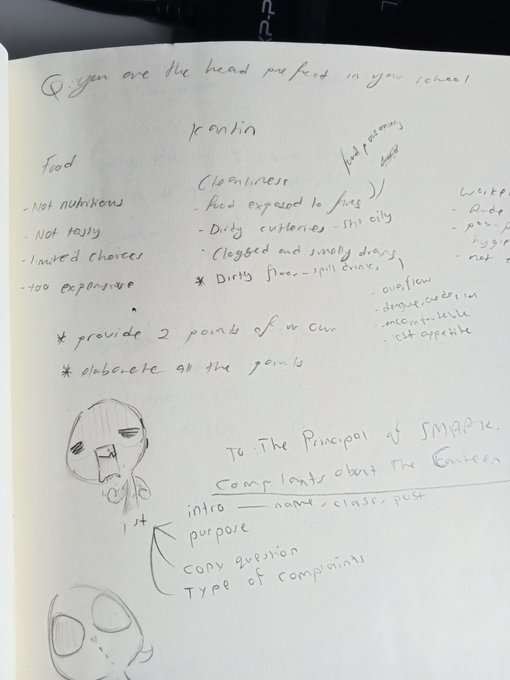 Q: you are the head prefect in your school
kantin
Food
- Not nutritious
- Not tasty
- limited choices
- too expensive
Cleanliness
food poisoning
- Food exposed to flies
- Dirty cutleries - still oily
- Clogged and smelly drains
* Dirty floor - spill drinks
- overflow
- dengue,
- uncomfortable
- lost appetite
Worke
- Rude
- poor
hygie
- not
* provide 2 points of ur own
* elaborate all the points
To: The Principal of SMAPK.
Complants about The Canteen
1st
intro — name, class, post
purpose
copy question
Type of complaints